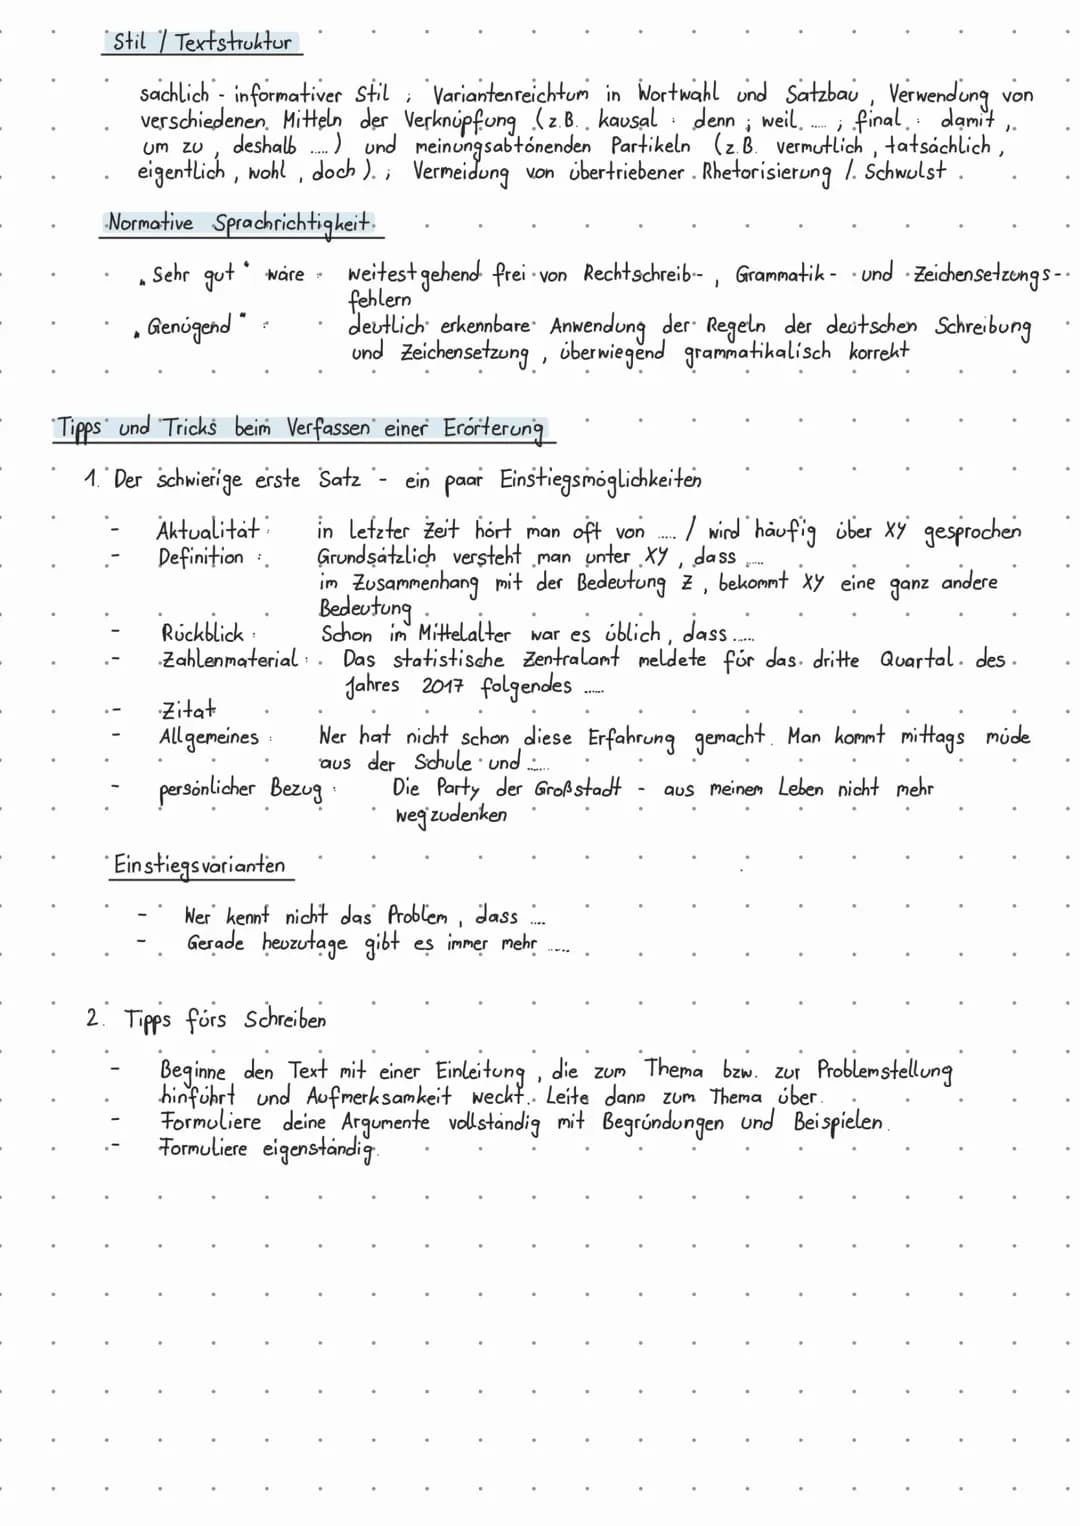 Stil / Textstruktur
sachlich - informativer Stil ; Variantenreichtum in Wortwahl und Satzbau , Verwendung von
verschiedenen Mitteln der Verknüpfung (z.B. kausal : denn ; weil ..... ; final : damit ,
um zu , deshalb ..... ) und meinungsabtönenden Partikeln (z.B. vermutlich , tatsächlich ,
eigentlich , wohl , doch ) ; Vermeidung von übertriebener Rhetorisierung / Schwulst .
Normative Sprachrichtigkeit
„ Sehr gut " wäre : weitestgehend frei von Rechtschreib - , Grammatik - und Zeichensetzungs -
fehlern
„ Genügend " : deutlich erkennbare Anwendung der Regeln der deutschen Schreibung
und Zeichensetzung , überwiegend grammatikalisch korrekt
Tipps und Tricks beim Verfassen einer Erörterung
1. Der schwierige erste Satz - ein paar Einstiegsmöglichkeiten
- Aktualität : in letzter Zeit hört man oft von ..... / wird häufig über XY gesprochen
- Definition : Grundsätzlich versteht man unter XY , dass .....
im Zusammenhang mit der Bedeutung Z , bekommt XY eine ganz andere
Bedeutung
- Rückblick : Schon im Mittelalter war es üblich , dass .....
- Zahlenmaterial : Das statistische Zentralamt meldete für das dritte Quartal des
Jahres 2017 folgendes .....
- Zitat
- Allgemeines : Wer hat nicht schon diese Erfahrung gemacht . Man kommt mittags müde
aus der Schule und .....
- persönlicher Bezug : Die Party der Großstadt - aus meinem Leben nicht mehr
wegzudenken
Einstiegsvarianten
- Wer kennt nicht das Problem , dass ....
- Gerade heuzutage gibt es immer mehr .....
2. Tipps fürs Schreiben
- Beginne den Text mit einer Einleitung , die zum Thema bzw. zur Problemstellung
hinführt und Aufmerksamkeit weckt . Leite dann zum Thema über .
- Formuliere deine Argumente vollständig mit Begründungen und Beispielen .
- Formuliere eigenständig .